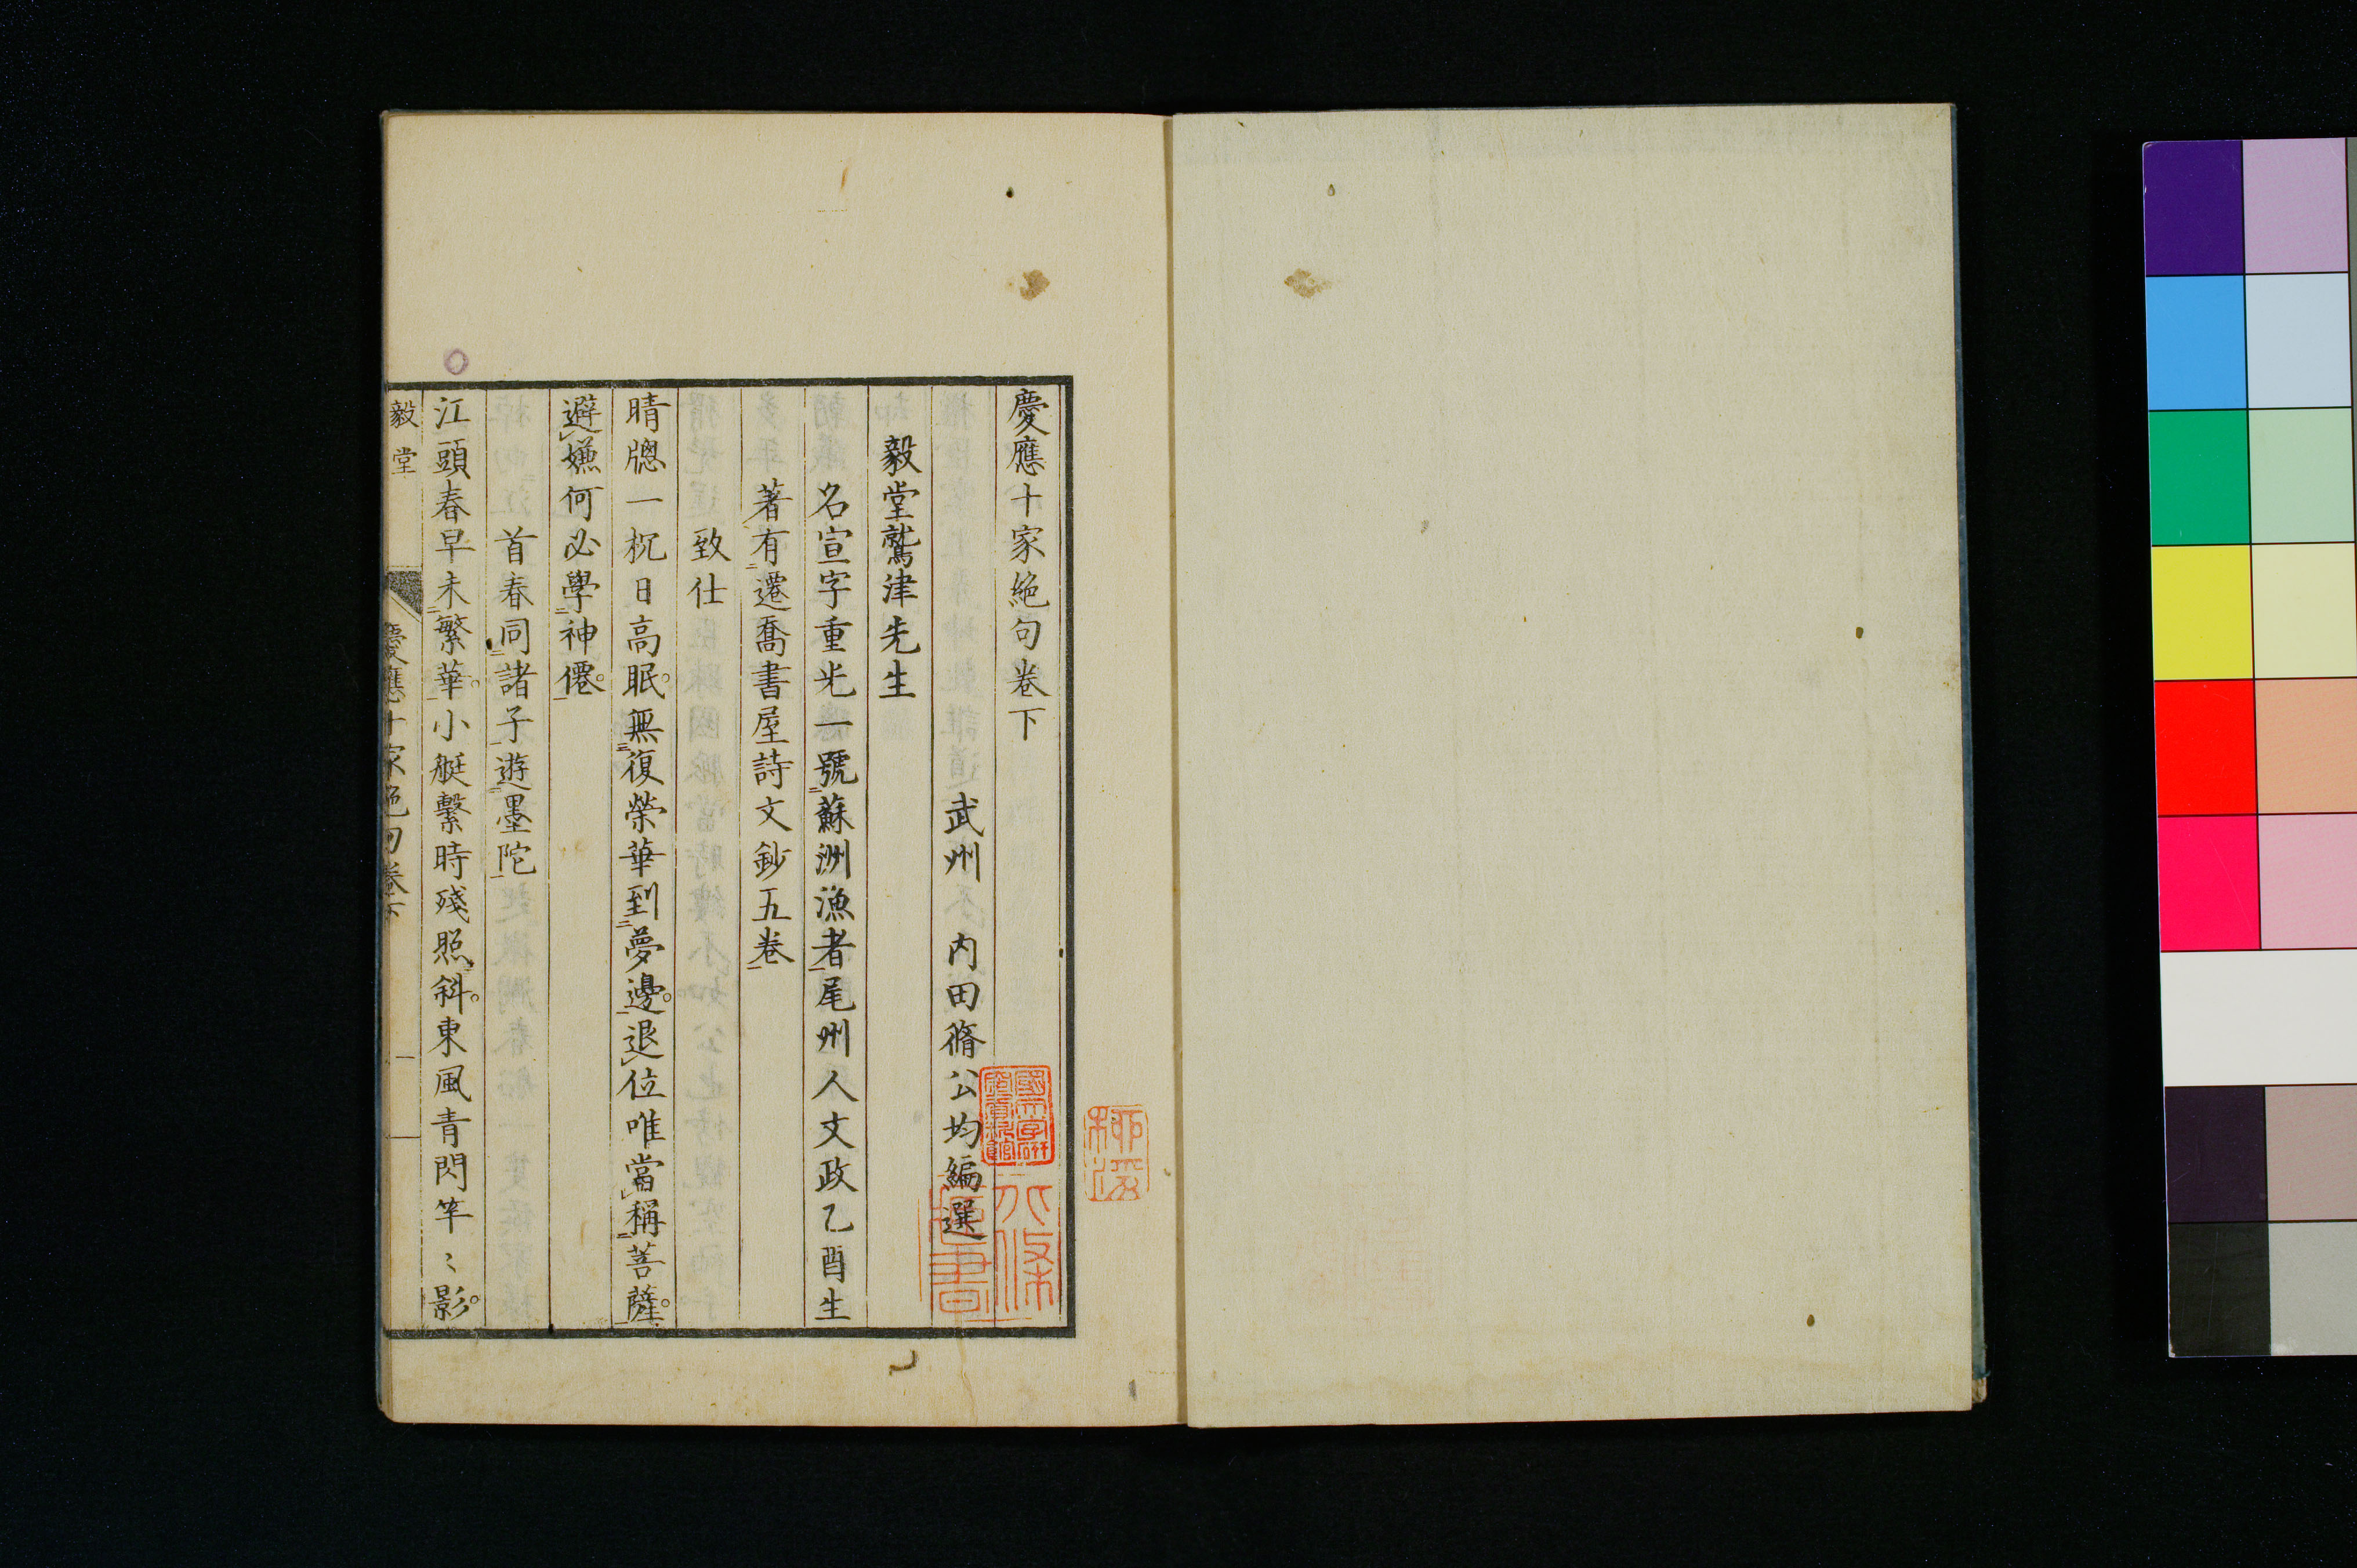 慶應十家絶句卷下
武州 内田脩公均編選
毅堂鷲津先生
名宣字重光一號蘇洲漁者尾州人文政乙酉生
著有遷喬書屋詩文鈔五卷
致仕
晴牕一枕日高眠。無復榮華到夢邊。退位唯當稱菩薩。
避嫌何必學神僊。
首春同諸子遊墨陀
江頭春早未繁華。小艇繫時殘照斜。東風青閃竿〻影。
毅堂
慶應十家絶句卷下
一